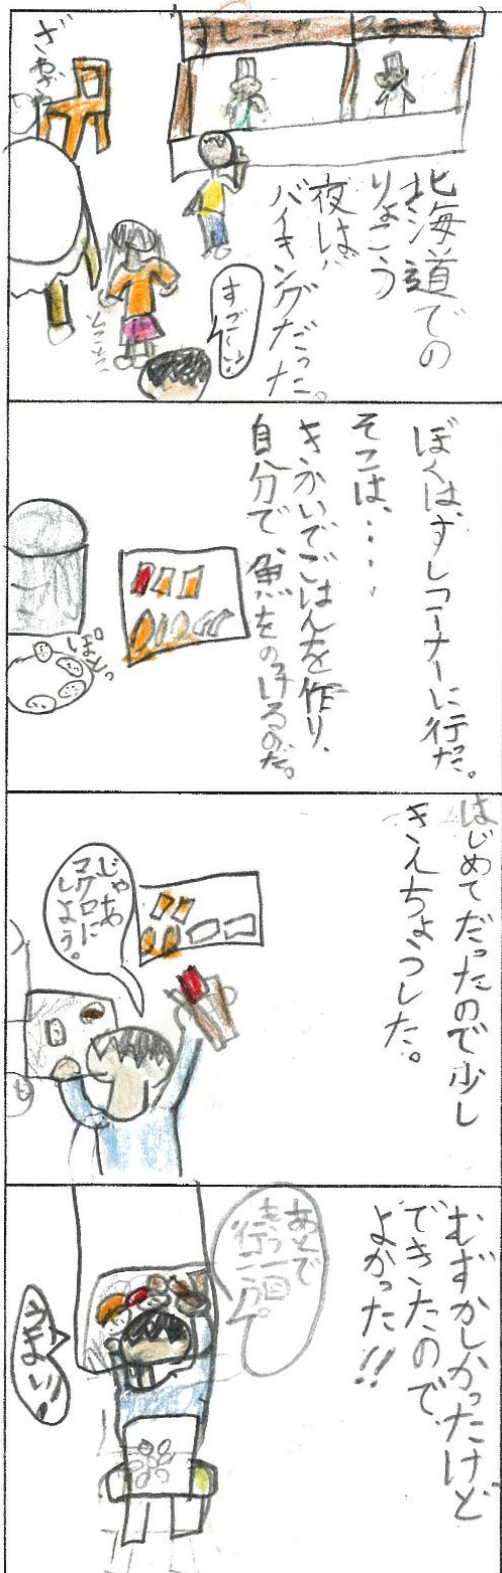 すしコーナー
ステーキ
北海道での
りょこう
夜は、
バイキングだった。
すごーい!
ざわざわ
ぼくは、すしコーナーに行た。
そこは、・・・・
きかいでごはんを作り、
自分で、魚をのけるのだ。
ぽとっ
はじめてだったので少し
きんちょうした。
じゃあ
マグロに
しよう。
むずかしかったけど
できたので、
よかった!!
あとで
もう一回
行こう。